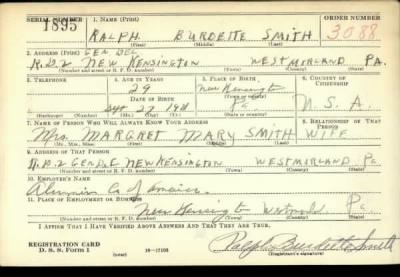 SERIAL NUMBER 1. NAME (Print) ORDER NUMBER
1895 RALPH BURDETTE SMITH 3088
(First) (Middle) (Last)
2. ADDRESS (Print) GEN DEL
R.D.2 NEW KENSINGTON WESTMORLAND PA.
(Number and street or R. F. D. number) (Town) (County) (State)
3. TELEPHONE 4. AGE IN YEARS 5. PLACE OF BIRTH 6. COUNTRY OF CITIZENSHIP
29 New Kensington
DATE OF BIRTH (Town or county)
27 1911 Pa U. S. A.
(Exchange) (Number) (Mo.) (Day) (Yr.) (State or country)
7. NAME OF PERSON WHO WILL ALWAYS KNOW YOUR ADDRESS 8. RELATIONSHIP OF THAT PERSON
Mrs. MARGRET MARY SMITH WIFE
(Mr., Mrs., Miss) (First) (Middle) (Last)
9. ADDRESS OF THAT PERSON
R.D.2 NEW KENSINGTON WESTMORLAND Pa
(Number and street or R. F. D. number) (Town) (County) (State)
10. EMPLOYER'S NAME
Co of America.
11. PLACE OF EMPLOYMENT OR BUSINESS
New Kensington Pa
(Number and street or R. F. D. number) (Town) (County) (State)
I AFFIRM THAT I HAVE VERIFIED ABOVE ANSWERS AND THAT THEY ARE TRUE.
REGISTRATION CARD
D. S. S. Form 1 (over) 16-17105 Ralph Burdette Smith
(Registrant's signature)